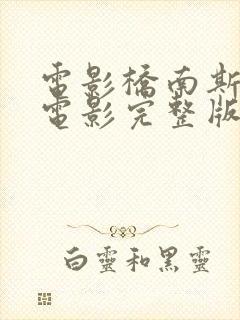 電影橋南斯
電影完整版
白靈和黑靈